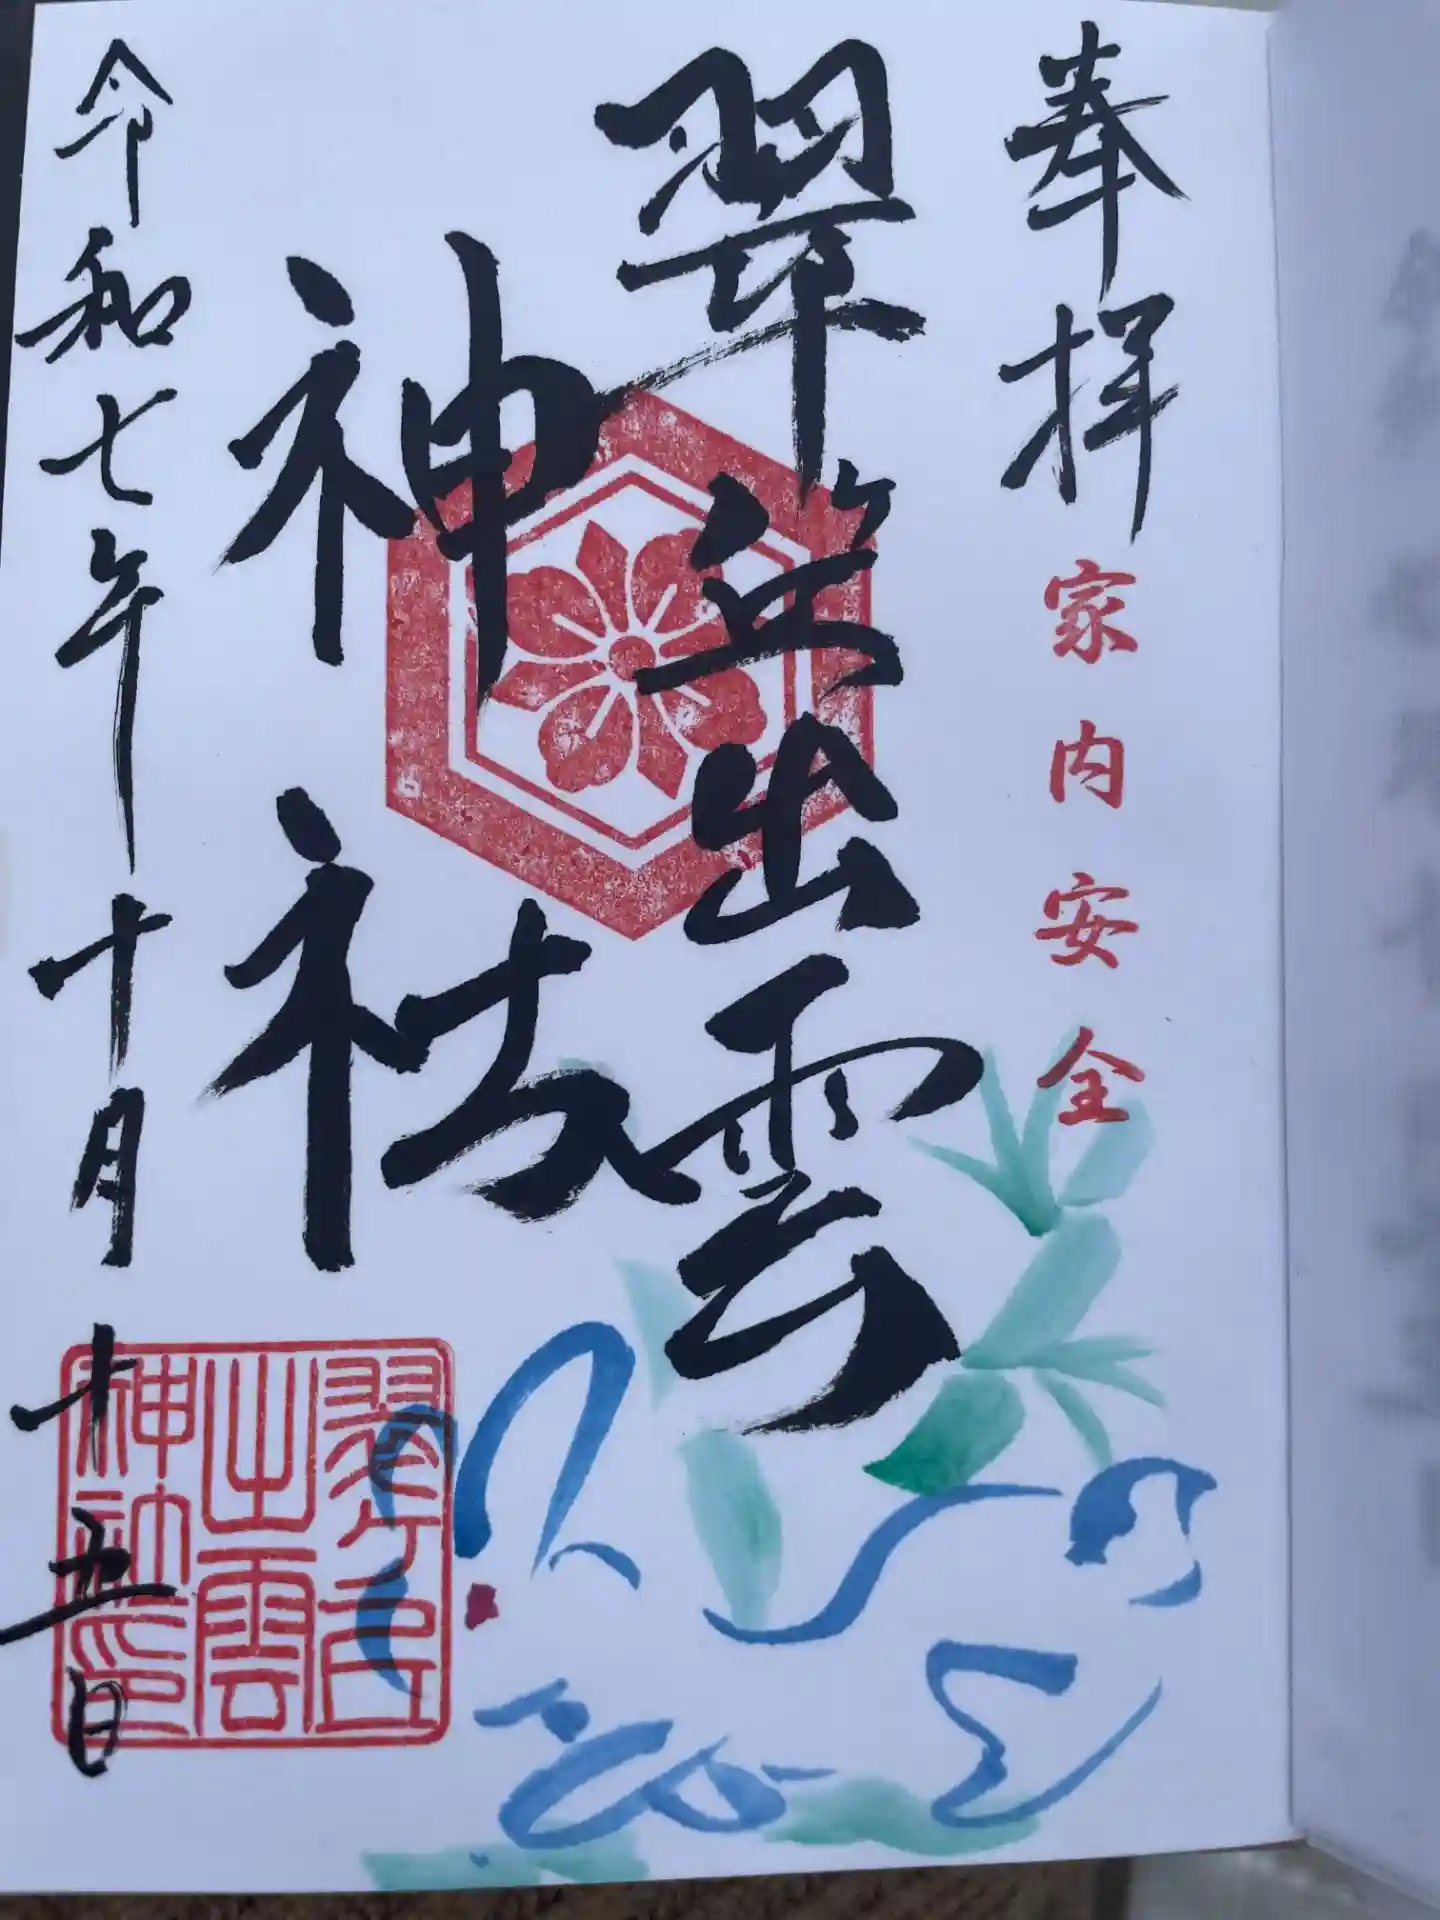 奉拝
家内安全
翠ヶ丘出雲
神社
令和七年十月十五日
翠ヶ丘
出雲
神社印